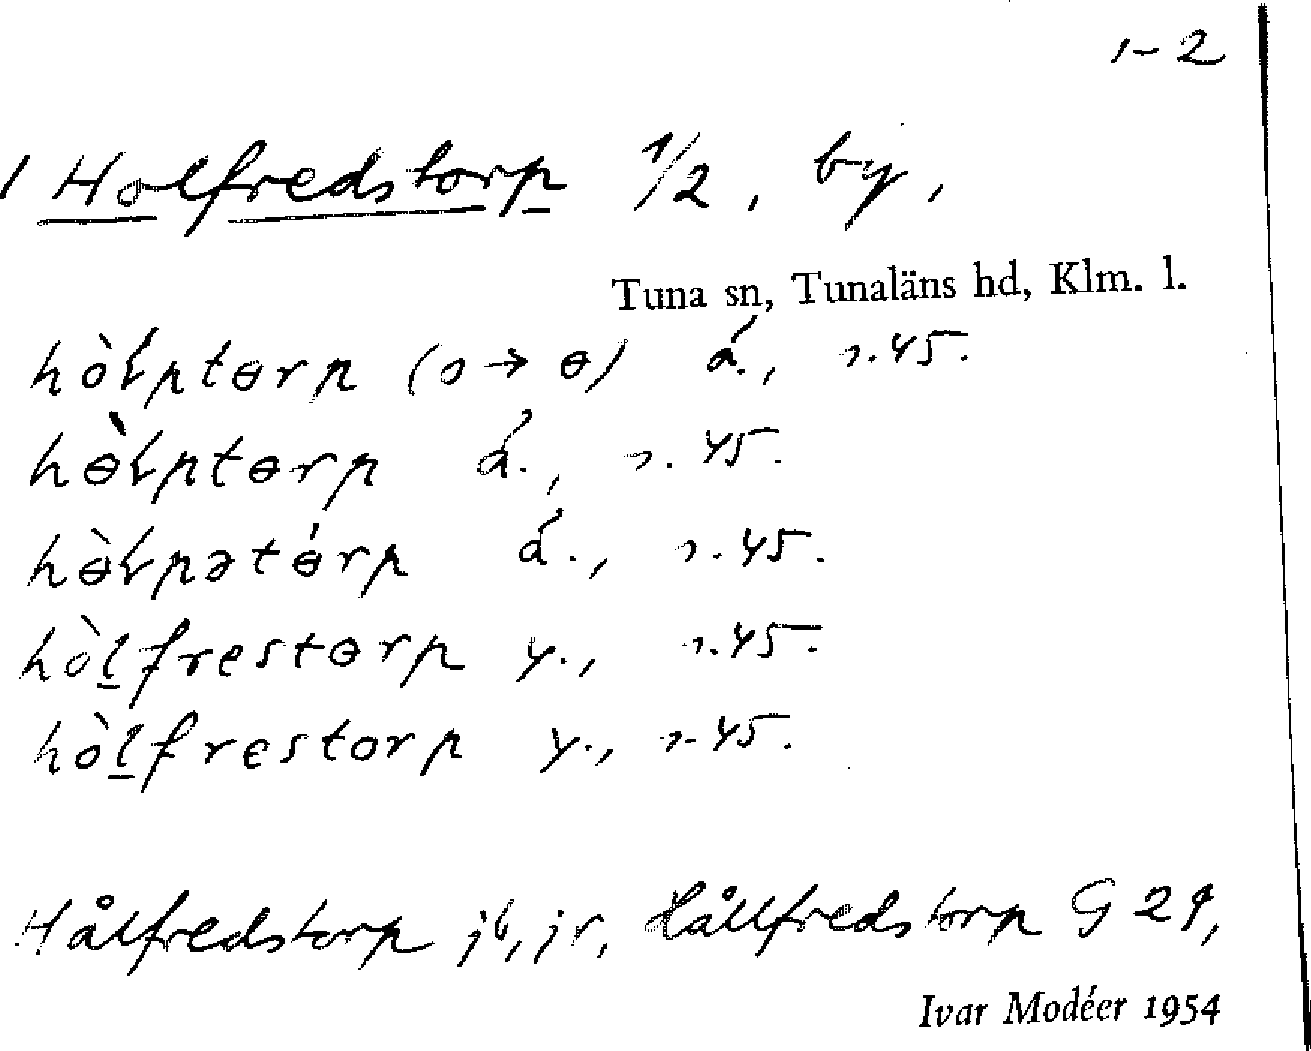 1-2
1 Holfredstorp 1/2, by,
Tuna sn, Tunaläns hd, Klm. l.
hòɫptɵrp (o → ɵ) ä́., 1.45.
hɵ̀ɫptɵrp ä́., 1.45.
hɵ̀ɫpətɵ́rp ä́., 1.45.
hòl̲frestɵrp y., 1.45.
hòl̲frestorp y., 1.45.
Hålfredstorp jb, jr, Hållfredstorp G 29,
Ivar Modéer 1954